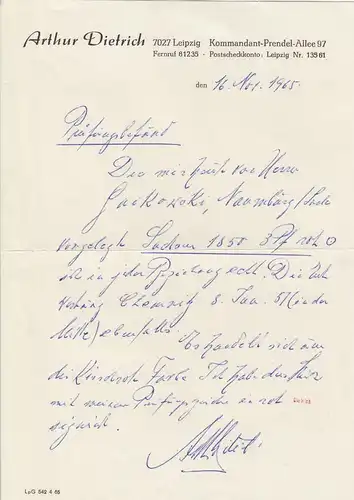 Arthur Dietrich 7027 Leipzig Kommandant-Prendel-Allee 97
Fernruf 61235 - Postscheckkonto: Leipzig Nr. 13561
den 16. Nov. 1965.
Prüfungsbefund
Die mir heute von Herrn
Naumburg/Saale
vorgelegte Sachsen 1850 3 Pf rot
ist in jeder Beziehung echt. Die Ent
wertung Chemnitz 8. Jan. 51 (in der
Mitte) ebenfalls. Es handelt sich um
die Farbe Ich habe das Stück
mit meinem Prüfungszeichen in rot
signiert.
LpG 642 4 65